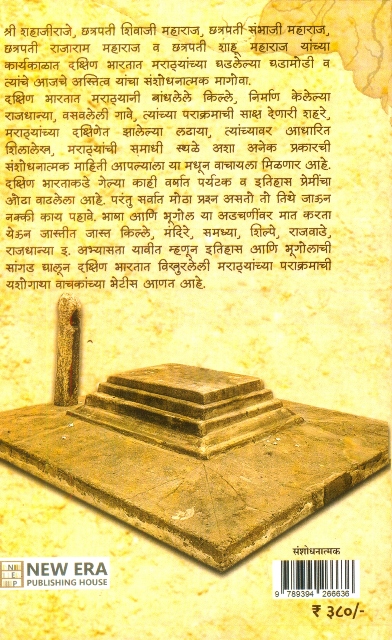 श्री शहाजीराजे, छत्रपती शिवाजी महाराज, छत्रपती संभाजी महाराज,
छत्रपती राजाराम महाराज व छत्रपती शाहू महाराज यांच्या
कार्यकाळात दक्षिण भारतात मराठ्यांच्या घडलेल्या घडामोडी व
त्यांचे आजचे अस्तित्व यांचा संशोधनात्मक मागोवा.
दक्षिण भारतात मराठ्यानी बांधलेले किल्ले, निर्माण केलेल्या
राजधान्या, वसवलेली गावे, त्यांच्या पराक्रमाची साक्ष देणारी शहरे,
मराठ्यांच्या दक्षिणेत झालेल्या लढाया, त्यांच्यावर आधारित
शिलालेख, मराठ्यांची समाधी स्थळे अशा अनेक प्रकारची
संशोधनात्मक माहिती आपल्याला या मधून वाचायला मिळणार आहे.
दक्षिण भारताकडे गेल्या काही वर्षात पर्यटक व इतिहास प्रेमींचा
ओढा वाढलेला आहे. परंतु सर्वात मोठा प्रश्न असतो तो तिथे जाऊन
नक्की काय पहावे. भाषा आणि भूगोल या अडचणींवर मात करता
येऊन जास्तीत जास्त किल्ले, मंदिरे, समध्या, शिल्पे, राजवाडे,
राजधान्या इ. अभ्यासता यावीत म्हणून इतिहास आणि भूगोलाची
सांगड घालून दक्षिण भारतात विखुरलेली मराठ्यांच्या पराक्रमाची
यशोगाथा वाचकांच्या भेटीस आणत आहे.
NEP
NEW ERA
PUBLISHING HOUSE
संशोधनात्मक
9 789394 266636
₹ ३८०/-